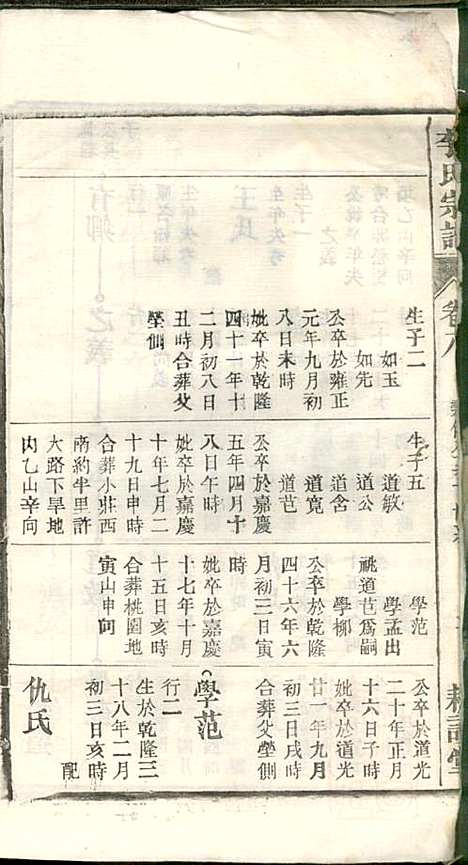 氏宗譜
卷八
生子二
如玉
如先
公卒於雍正
元年九月初
八日未時
妣卒於乾隆
四十一年十
二月初八日
丑時合葬父
塋側
生子五
道敏
道公
道含
道寬
道芑
公卒於嘉慶
五年四月十
八日午時
妣卒於嘉慶
十年七月二
十九日申時
合葬小莊西
南約半里許
大路下旱地
內乙山辛向
學范
學孟出
祧道芑爲嗣
學柳
公卒於乾隆
四十六年六
月初三日寅
時
妣卒於嘉慶
十七年十月
十五日亥時
合葬桃園地
寅山申向
公卒於道光
二十年正月
十六日子時
妣卒於道光
廿一年九月
初三日戌時
合葬父塋側
學范
行二
生於乾隆三
十八年二月
初三日亥時
配
仇氏